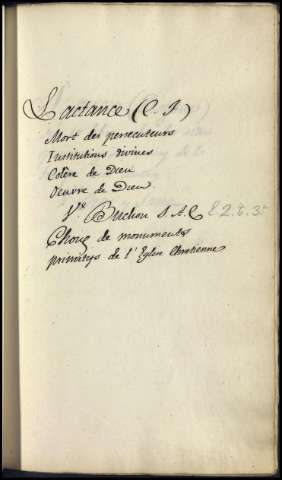 Lactance (C. F)
Mort des persecuteurs
Institutions divines
Colère de Dieu
Oeuvre de Dieu.
Ve. Buchon J. A. C E 2. 8. 3.
Choix de monuments
primitifs de l'Eglise Chretienne